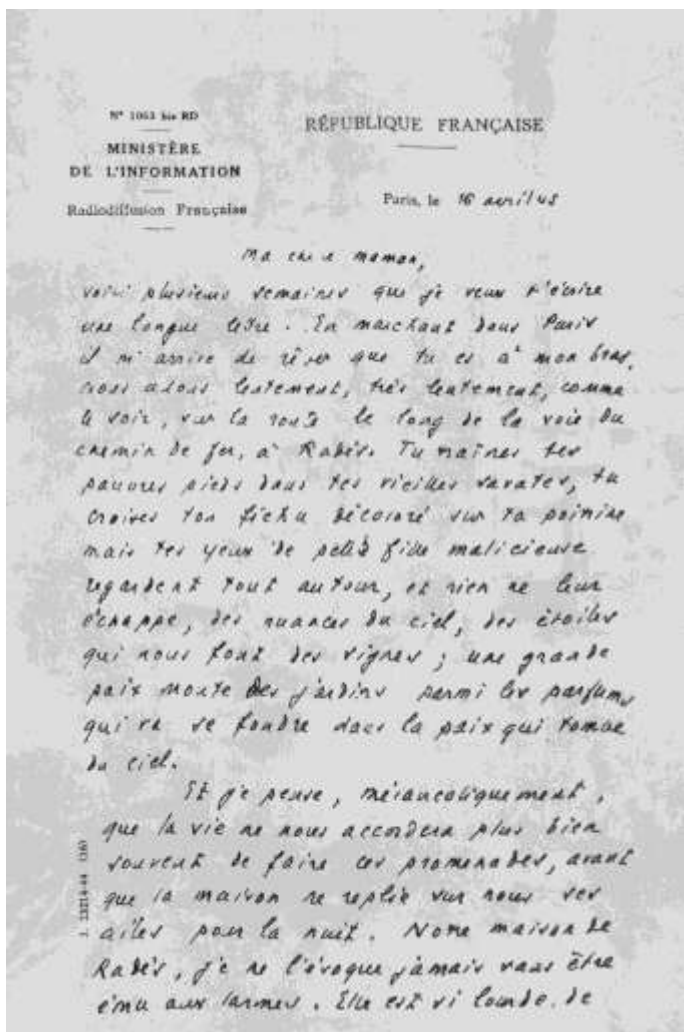 N° 1063 bis RD
MINISTÈRE
DE L'INFORMATION
Radiodiffusion Française
RÉPUBLIQUE FRANÇAISE
Paris, le 16 avril 45
Ma chère maman,
voici plusieurs semaines que je veux t'écrire
une longue lettre. En marchant dans Paris
il m'arrive de rêver que tu es à mon bras,
nous allons lentement, très lentement, comme
le soir, sur la route le long de la voie du
chemin de fer, à Radès. Tu traînes tes
pauvres pieds dans tes vieilles savates, tu
croises ton fichu décoloré sur ta poitrine
mais tes yeux de petite fille malicieuse
regardent tout autour, et rien ne leur
échappe, des nuances du ciel, des étoiles
qui nous font des signes ; une grande
paix monte des jardins parmi les parfums
qui va se fondre dans la paix qui tombe
du ciel.
Et je pense, mélancoliquement,
que la vie ne nous accordera plus bien
souvent de faire ces promenades, avant
que la maison ne replie sur nous ses
ailes pour la nuit. Notre maison de
Radès, je ne l'évoque jamais sans être
ému aux larmes. Elle est si lourde de